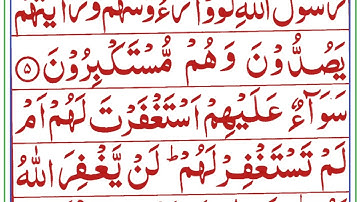 رَسُوْلُ اللّٰهِ لَوَّوْا رُءُوْسَهُمْ وَرَاَيْتَهُمْ
يَصُدُّوْنَ وَهُمْ مُّسْتَكْبِرُوْنَ ۵
سَوَآءٌ عَلَيْهِمْ اَسْتَغْفَرْتَ لَهُمْ اَمْ
لَمْ تَسْتَغْفِرْ لَهُمْ ؕ لَنْ يَّغْفِرَ اللّٰهُ